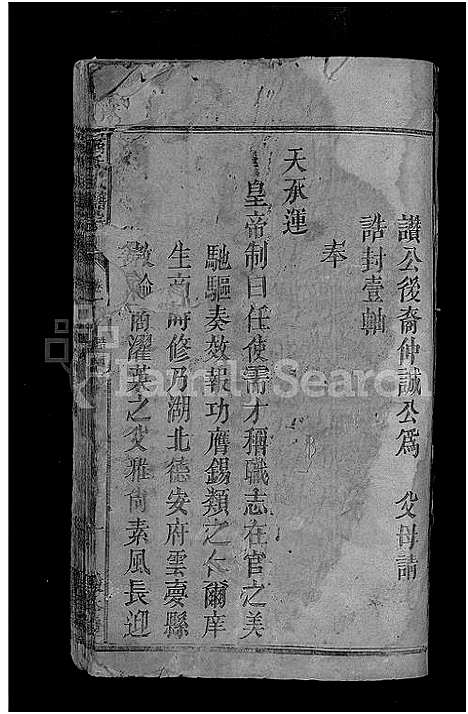 讃公後裔仲誠公爲 父母請
誥封壹軸
奉
天承運
皇帝制曰任使需才稱職志在官之美
馳驅奏效報功膺錫類之仁爾庠
生商時修乃湖北德安府雲夢縣
教諭商濯英之父雅尚素風長迎
Family Search